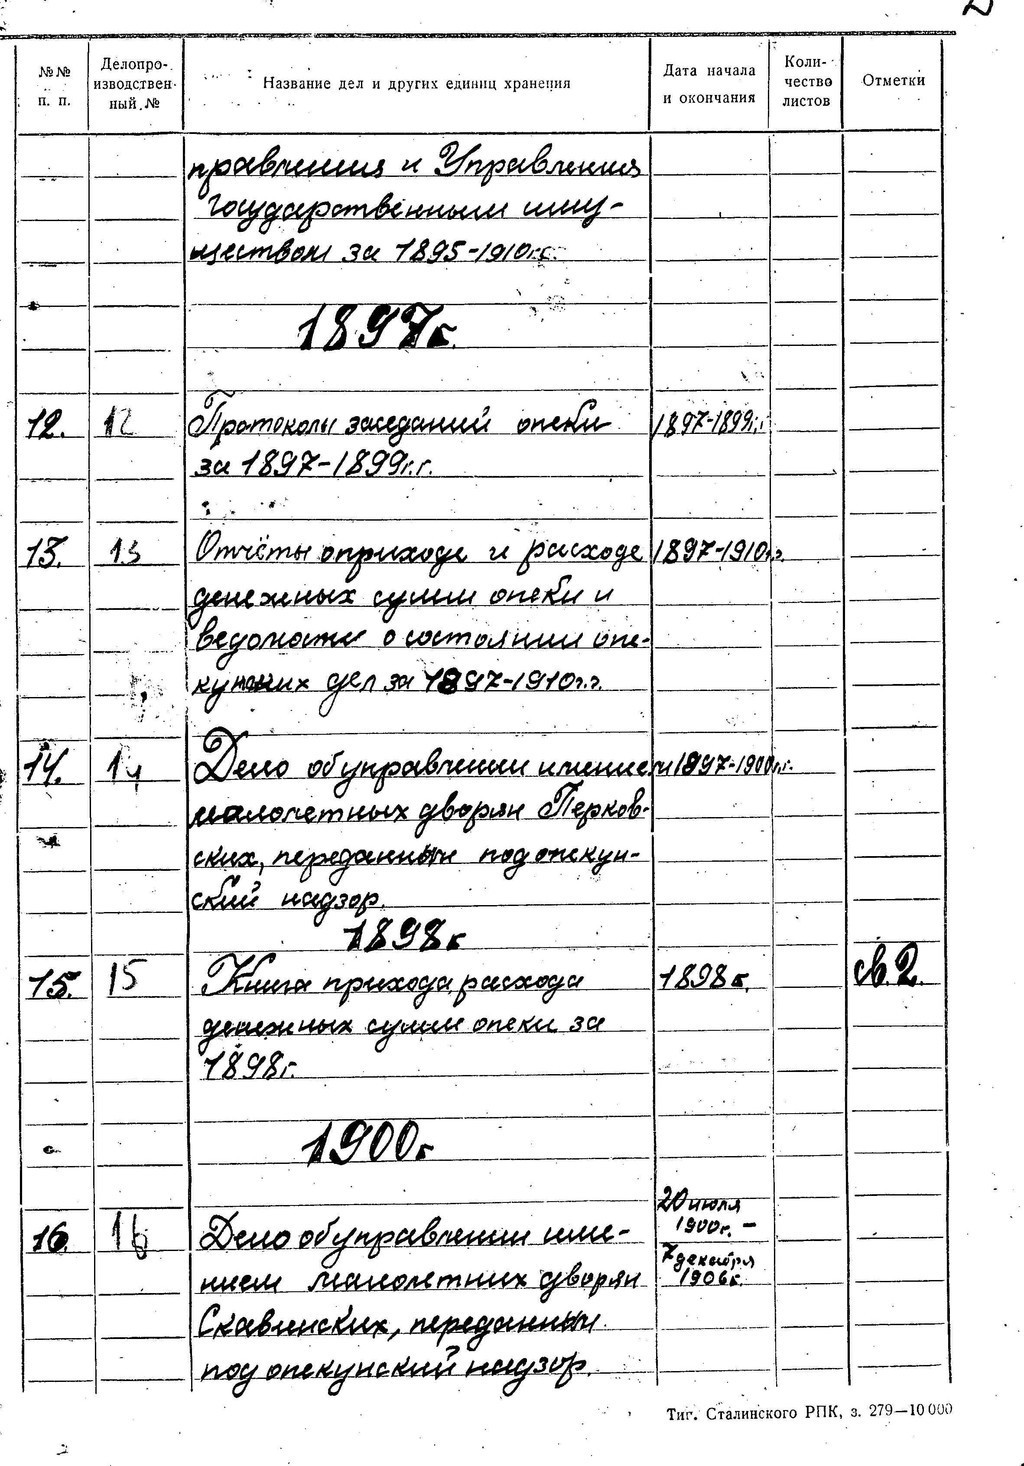 №№ п. п.
Делопроизводственный №
Название дел и других единиц хранения
Дата начала и окончания
Количество листов
Отметки
правления и Управления
государственным иму-
ществом за 1895-1910г.г.
1897г.
12. 12 Протоколы заседаний опеки 1897-1899г.г.
за 1897-1899г.г.
13. 13 Отчёты о приходе и расходе 1897-1910г.г.
денежных сумм опеки и
ведомости о состоянии опе-
кунских дел за 1897-1910г.г.
14. 14 Дело об управлении имением 1897-1900г.г.
малолетных дворян Перков-
ских, переданным под опекун-
ский надзор.
1898г
15. 15 Книга прихода, расхода 1898г. св.2.
денежных сумм опеки за
1898г.
1900г
20 июля
1900г. –
16. 16 Дело об управлении име-
7 декабря
1906г.
нием малолетних дворян
Скавинских, переданным
под опекунский надзор.
Тиг. Сталинского РПК, з. 279—10000
2